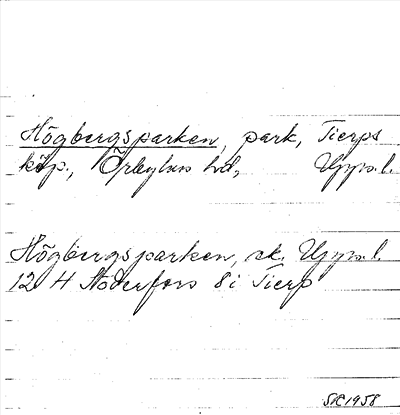 Högbergsparken, park, Tierps
köp., Örbyhus hd, Upps.l.
Högbergsparken, ek. Upps.l.
12 H Söderfors 8i Tierp
SK 1958